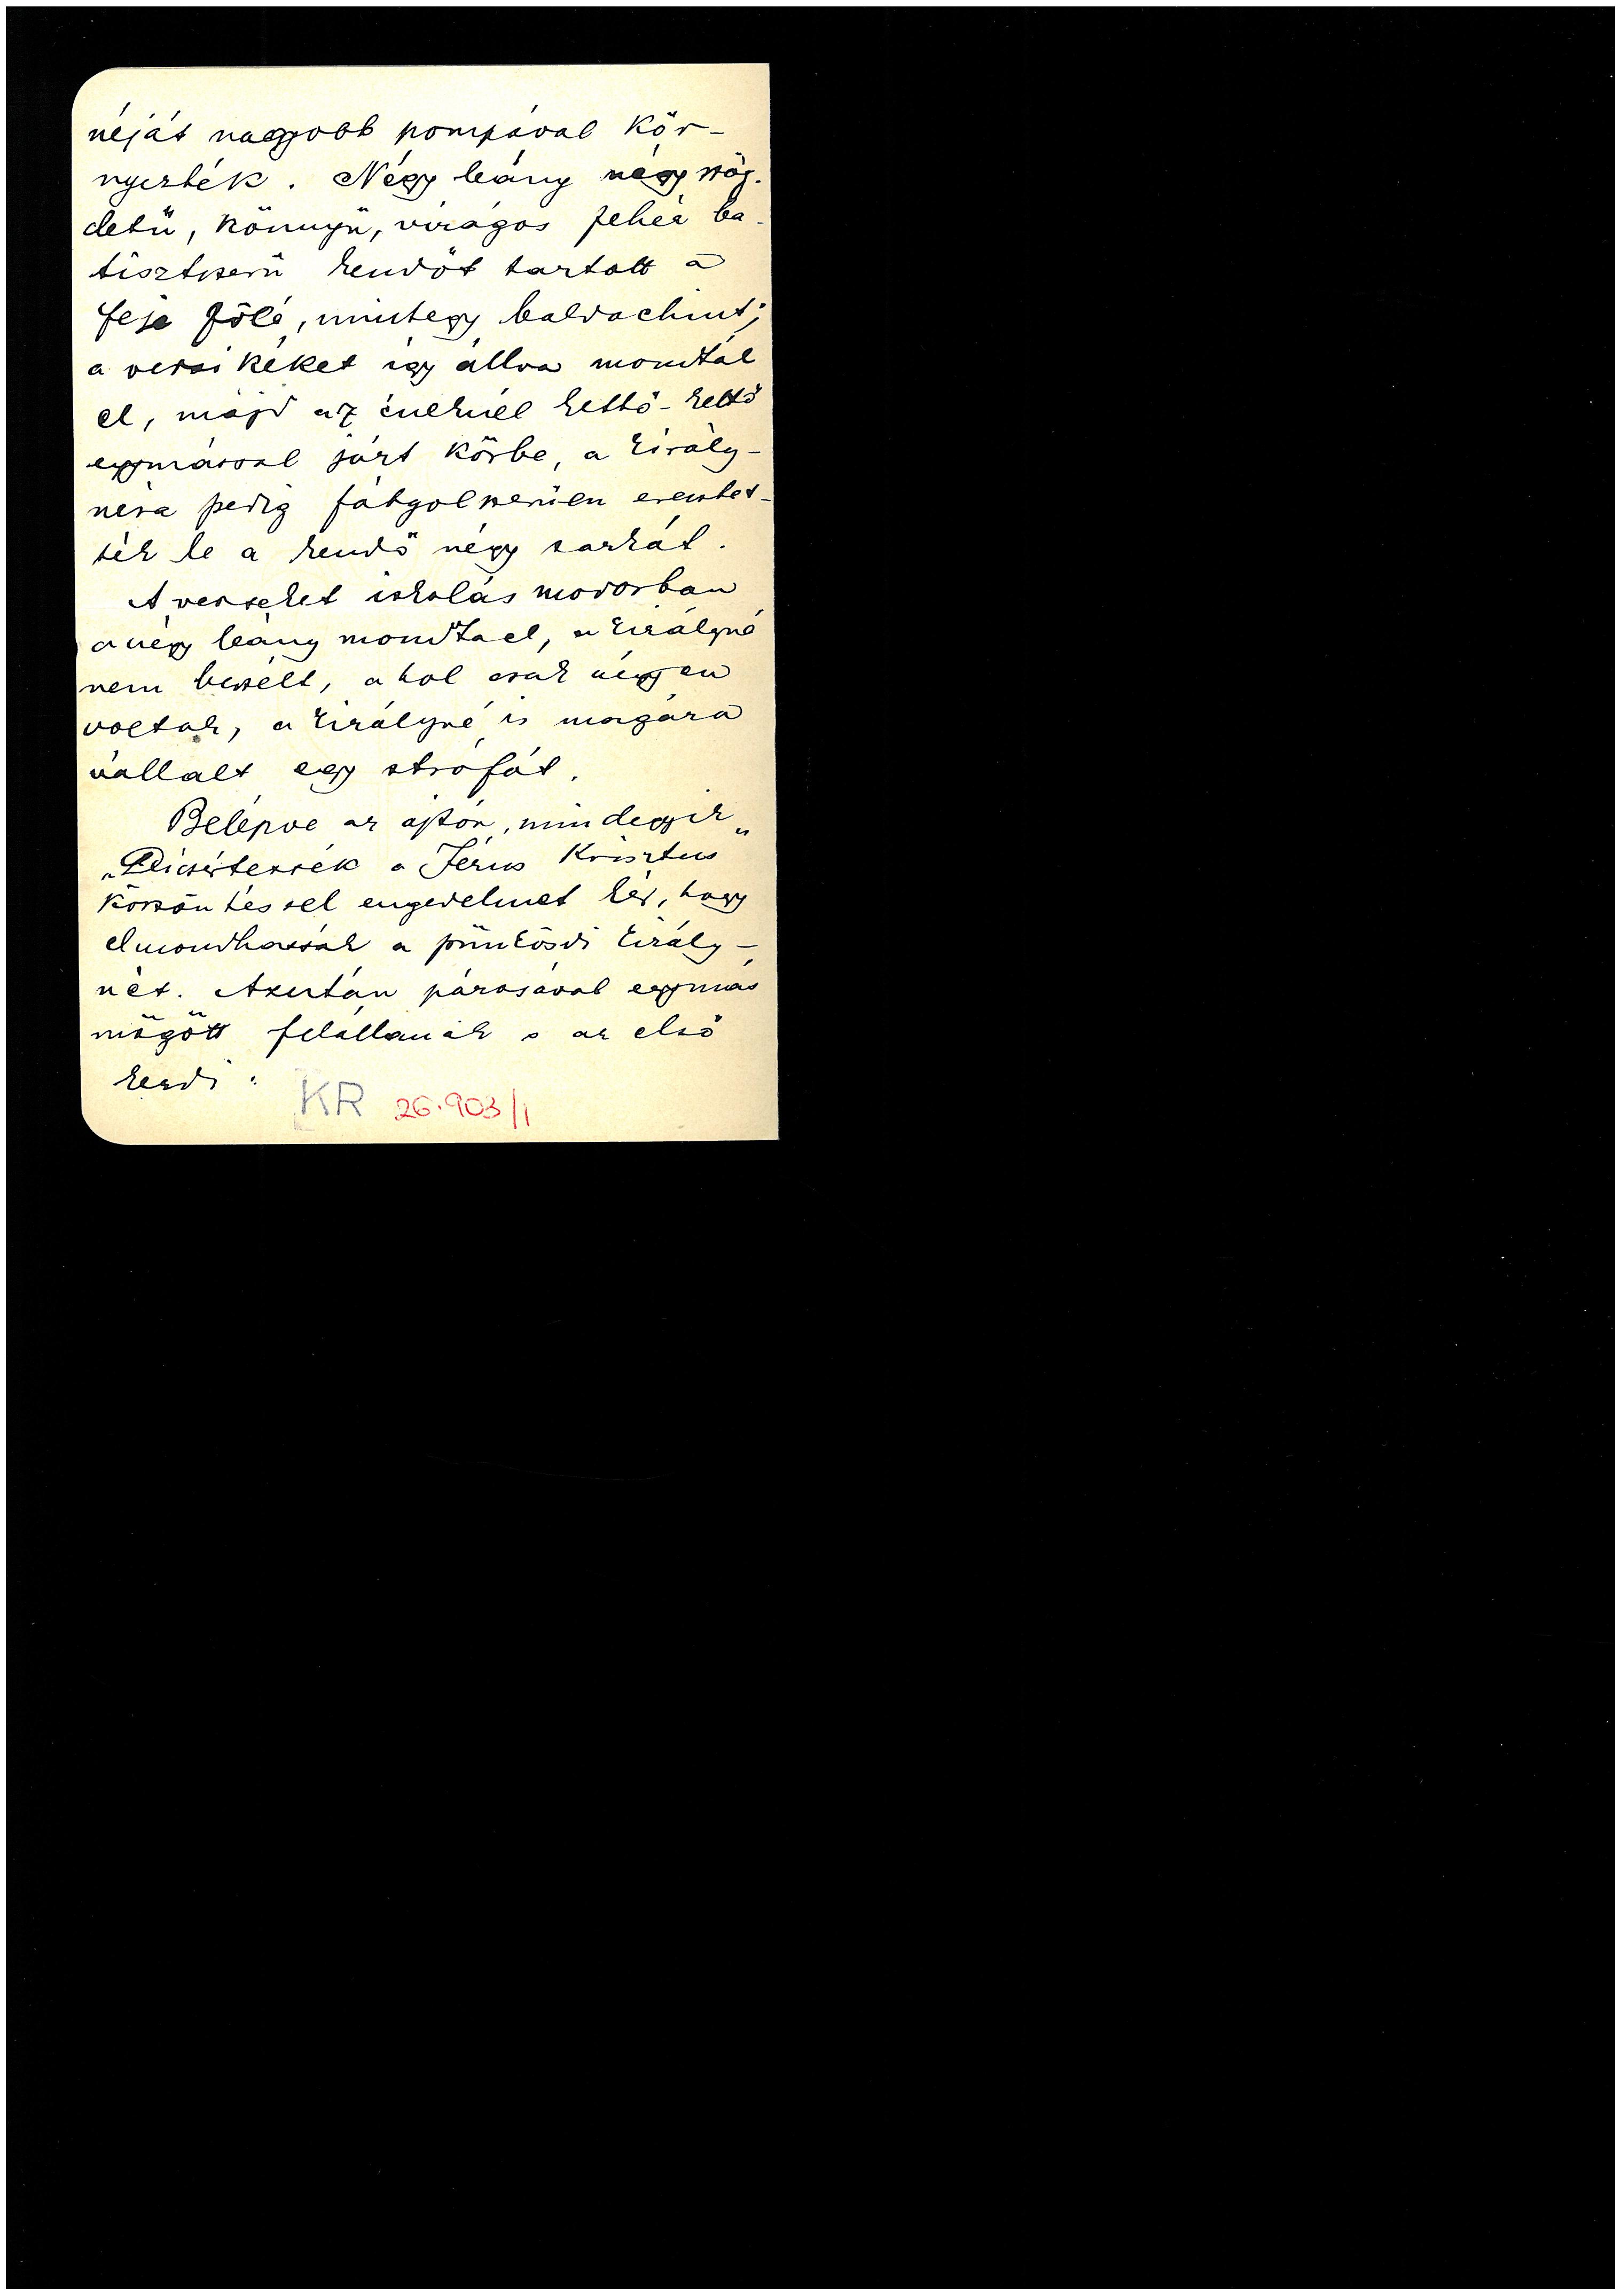 néját nagyobb pompával kör-
nyezték. Négy leány négyszög-
letü, könnyü, virágos fehér ba-
tisztszerü kendöt tartott a
feje fölé, mintegy baldachint;
a versikéket így állva mondták
el, majd az éneknél kettö-kettö
egymással járt körbe, a király-
néra pedig fátyolszerüen eresztet-
ték le a kendö négy sarkát.
A verseket iskolás modorban
a négy leány mondta el, a királyné
nem beszélt, a hol csak négyen
voltak, a királyné is magára
vállalt egy strófát.
Belépve az ajtón, mindegyik
„Dicsértessék a Jézus Krisztus"
köszöntéssel engedelmet kér, hogy
elmondhassák a pünkösdi király-
nét. Azután párosával egymás
mögött felállanak s az elsö
kezdi:
KR 26.903/1